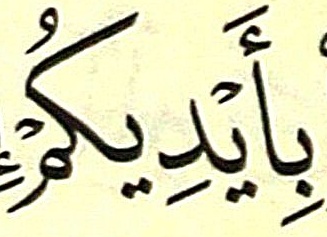 بِأَيْدِيكُمْ